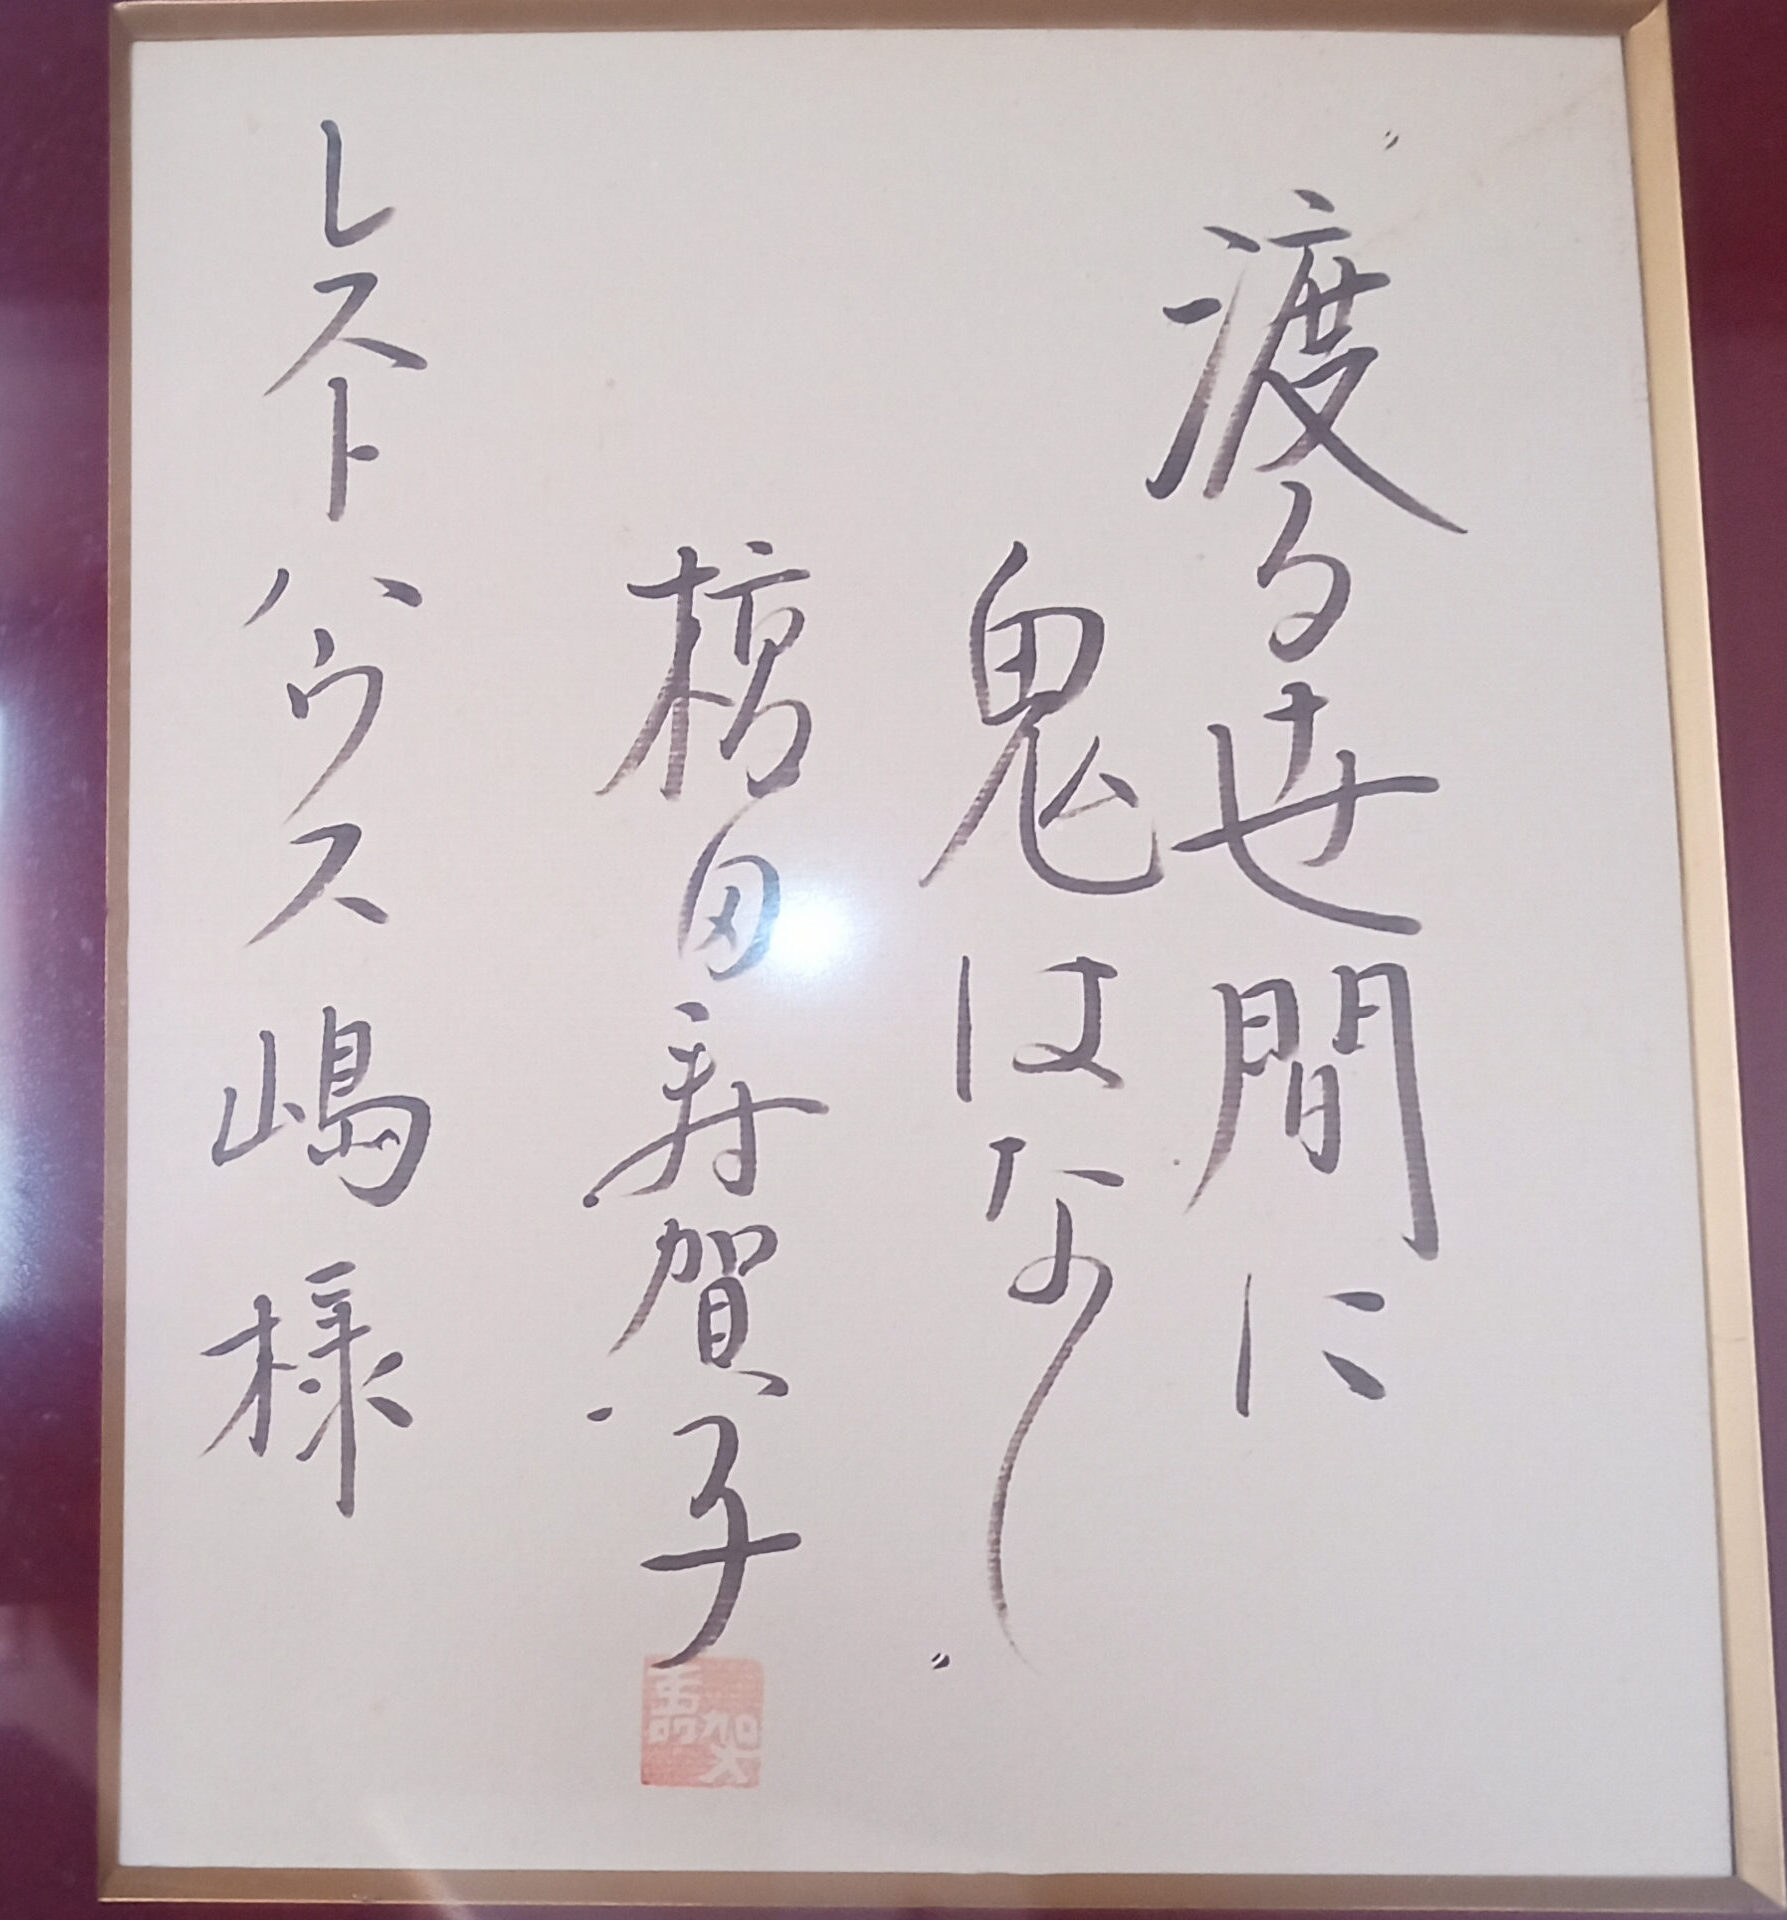 〝渡る世間に
鬼はなし〟
橋田寿賀子
レストハウス嶋様
寿賀